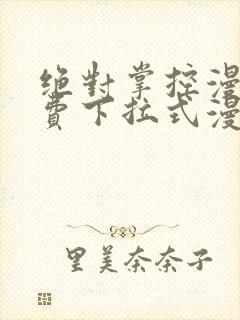 绝對掌控漫
費下拉式漫
里美奈奈子